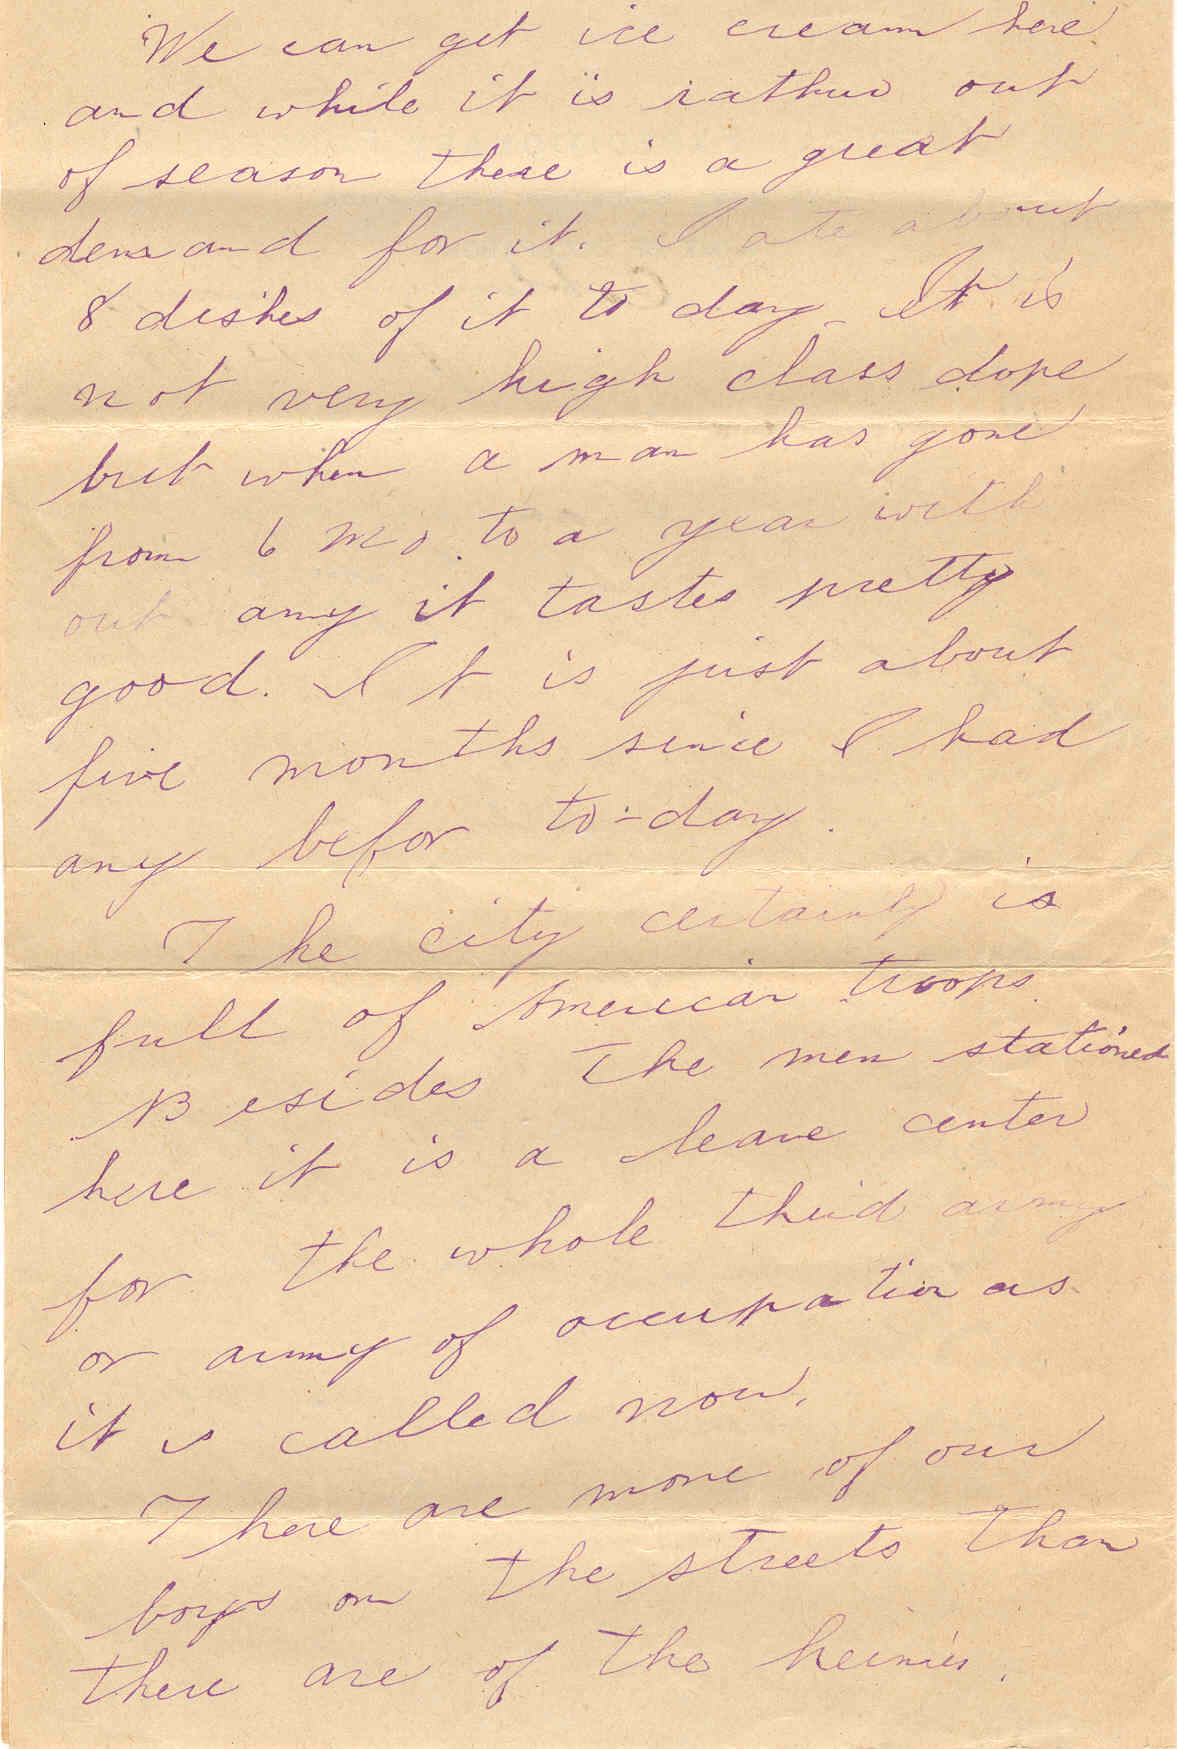 We can get ice cream here
and while it is rather out
of season there is a great
demand for it. I ate about
8 dishes of it to day. It is
not very high class dope
but when a man has gone
from 6 mo. to a year with
out any it tastes pretty
good. It is just about
five months since I had
any befor to-day.
The city certainly is
full of American troops.
Besides the men stationed
here it is a leave center
for the whole third army
or army of occupation as
it is called now.
There are more of our
boys on the streets than
there are of the heinies.